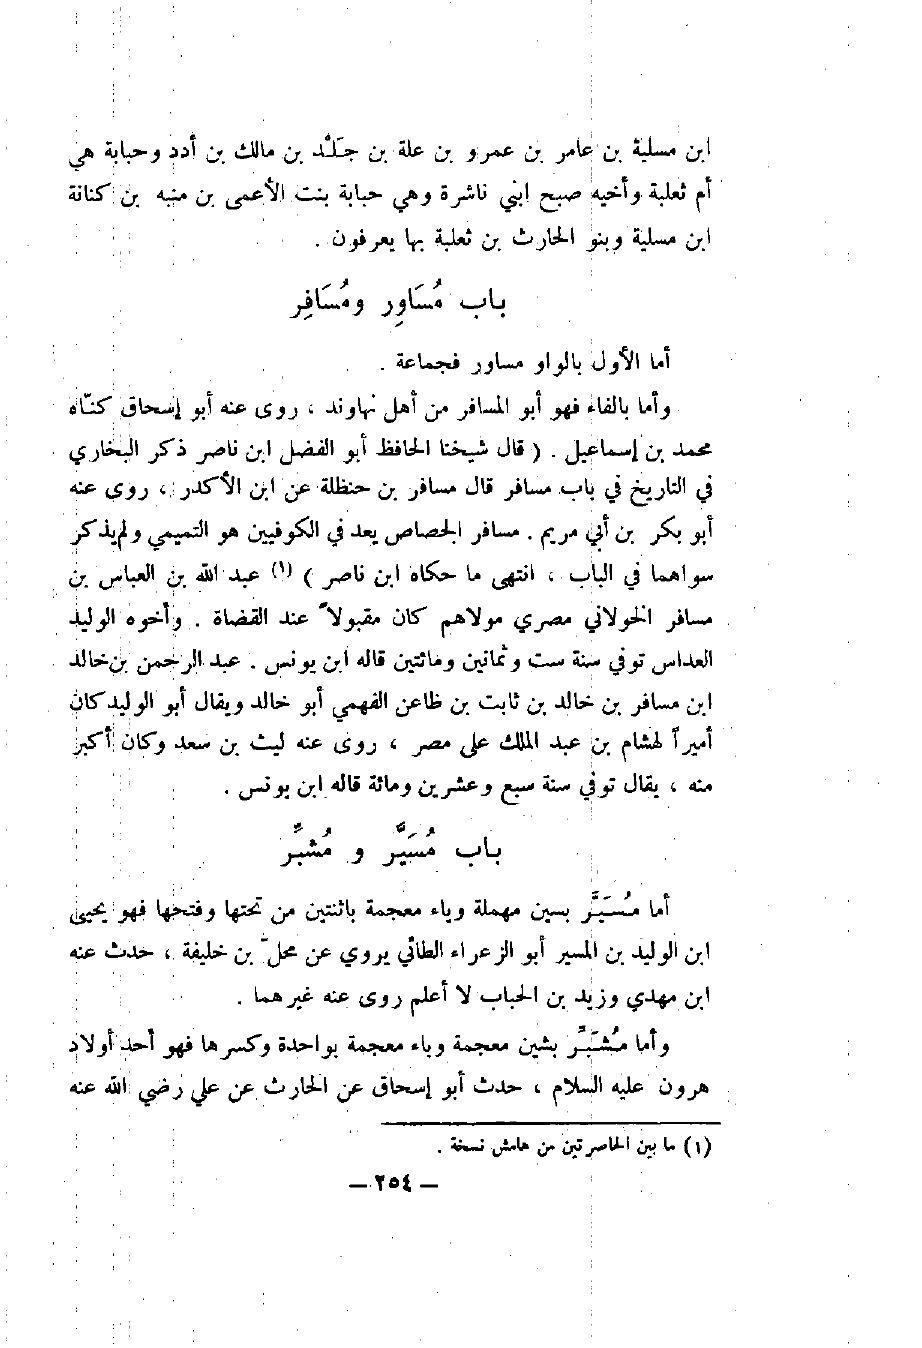 ابن مسلية بن عامر بن عمرو بن علة بن جَلْد بن مالك بن أدد وحبابة هي
أم ثعلبة وأخيه صبح ابني ناشرة وهي حبابة بنت الأعمى بن منبه بن كنانة
ابن مسلية وبنو الحارث بن ثعلبة بها يعرفون .
باب مُسَاوِر ومُسَافِر
أما الأول بالواو مساور فجماعة .
وأما بالفاء فهو أبو المسافر من أهل نهاوند ، روى عنه أبو إسحاق كنّاه
محمد بن إسماعيل . ( قال شيخنا الحافظ أبو الفضل ابن ناصر ذكر البخاري
في التاريخ في باب مسافر قال مسافر بن حنظلة عن ابن الأكدر ، روى عنه
أبو بكر بن أبي مريم . مسافر الجصاص يعد في الكوفيين هو التميمي ولم يذكر
سواهما في الباب ، انتهى ما حكاه ابن ناصر ) (١) عبد الله بن العباس بن
مسافر الخولاني مصري مولاهم كان مقبولاً عند القضاة . وأخوه الوليد
العداس توفي سنة ست وثمانين ومائتين قاله ابن يونس . عبد الرحمن بن خالد
ابن مسافر بن خالد بن ثابت بن ظاعن الفهمي أبو خالد ويقال أبو الوليد كان
أميراً لهشام بن عبد الملك على مصر ، روى عنه ليث بن سعد وكان أكبر
منه ، يقال توفي سنة سبع وعشرين ومائة قاله ابن يونس .
باب مُسَيَّر و مُشَبِّر
أما مُسَيَّر بسين مهملة وياء معجمة باثنتين من تحتها وفتحها فهو يحيى
ابن الوليد بن المسير أبو الزعراء الطائي يروي عن محلّ بن خليفة ، حدث عنه
ابن مهدي وزيد بن الحباب لا أعلم روى عنه غيرهما .
وأما مُشَبِّر بشين معجمة وباء معجمة بواحدة وكسرها فهو أحد أولاد
هرون عليه السلام ، حدث أبو إسحاق عن الحارث عن علي رضي الله عنه
(١) ما بين الحاصرتين من هامش نسخة .
— ٢٥٤ —